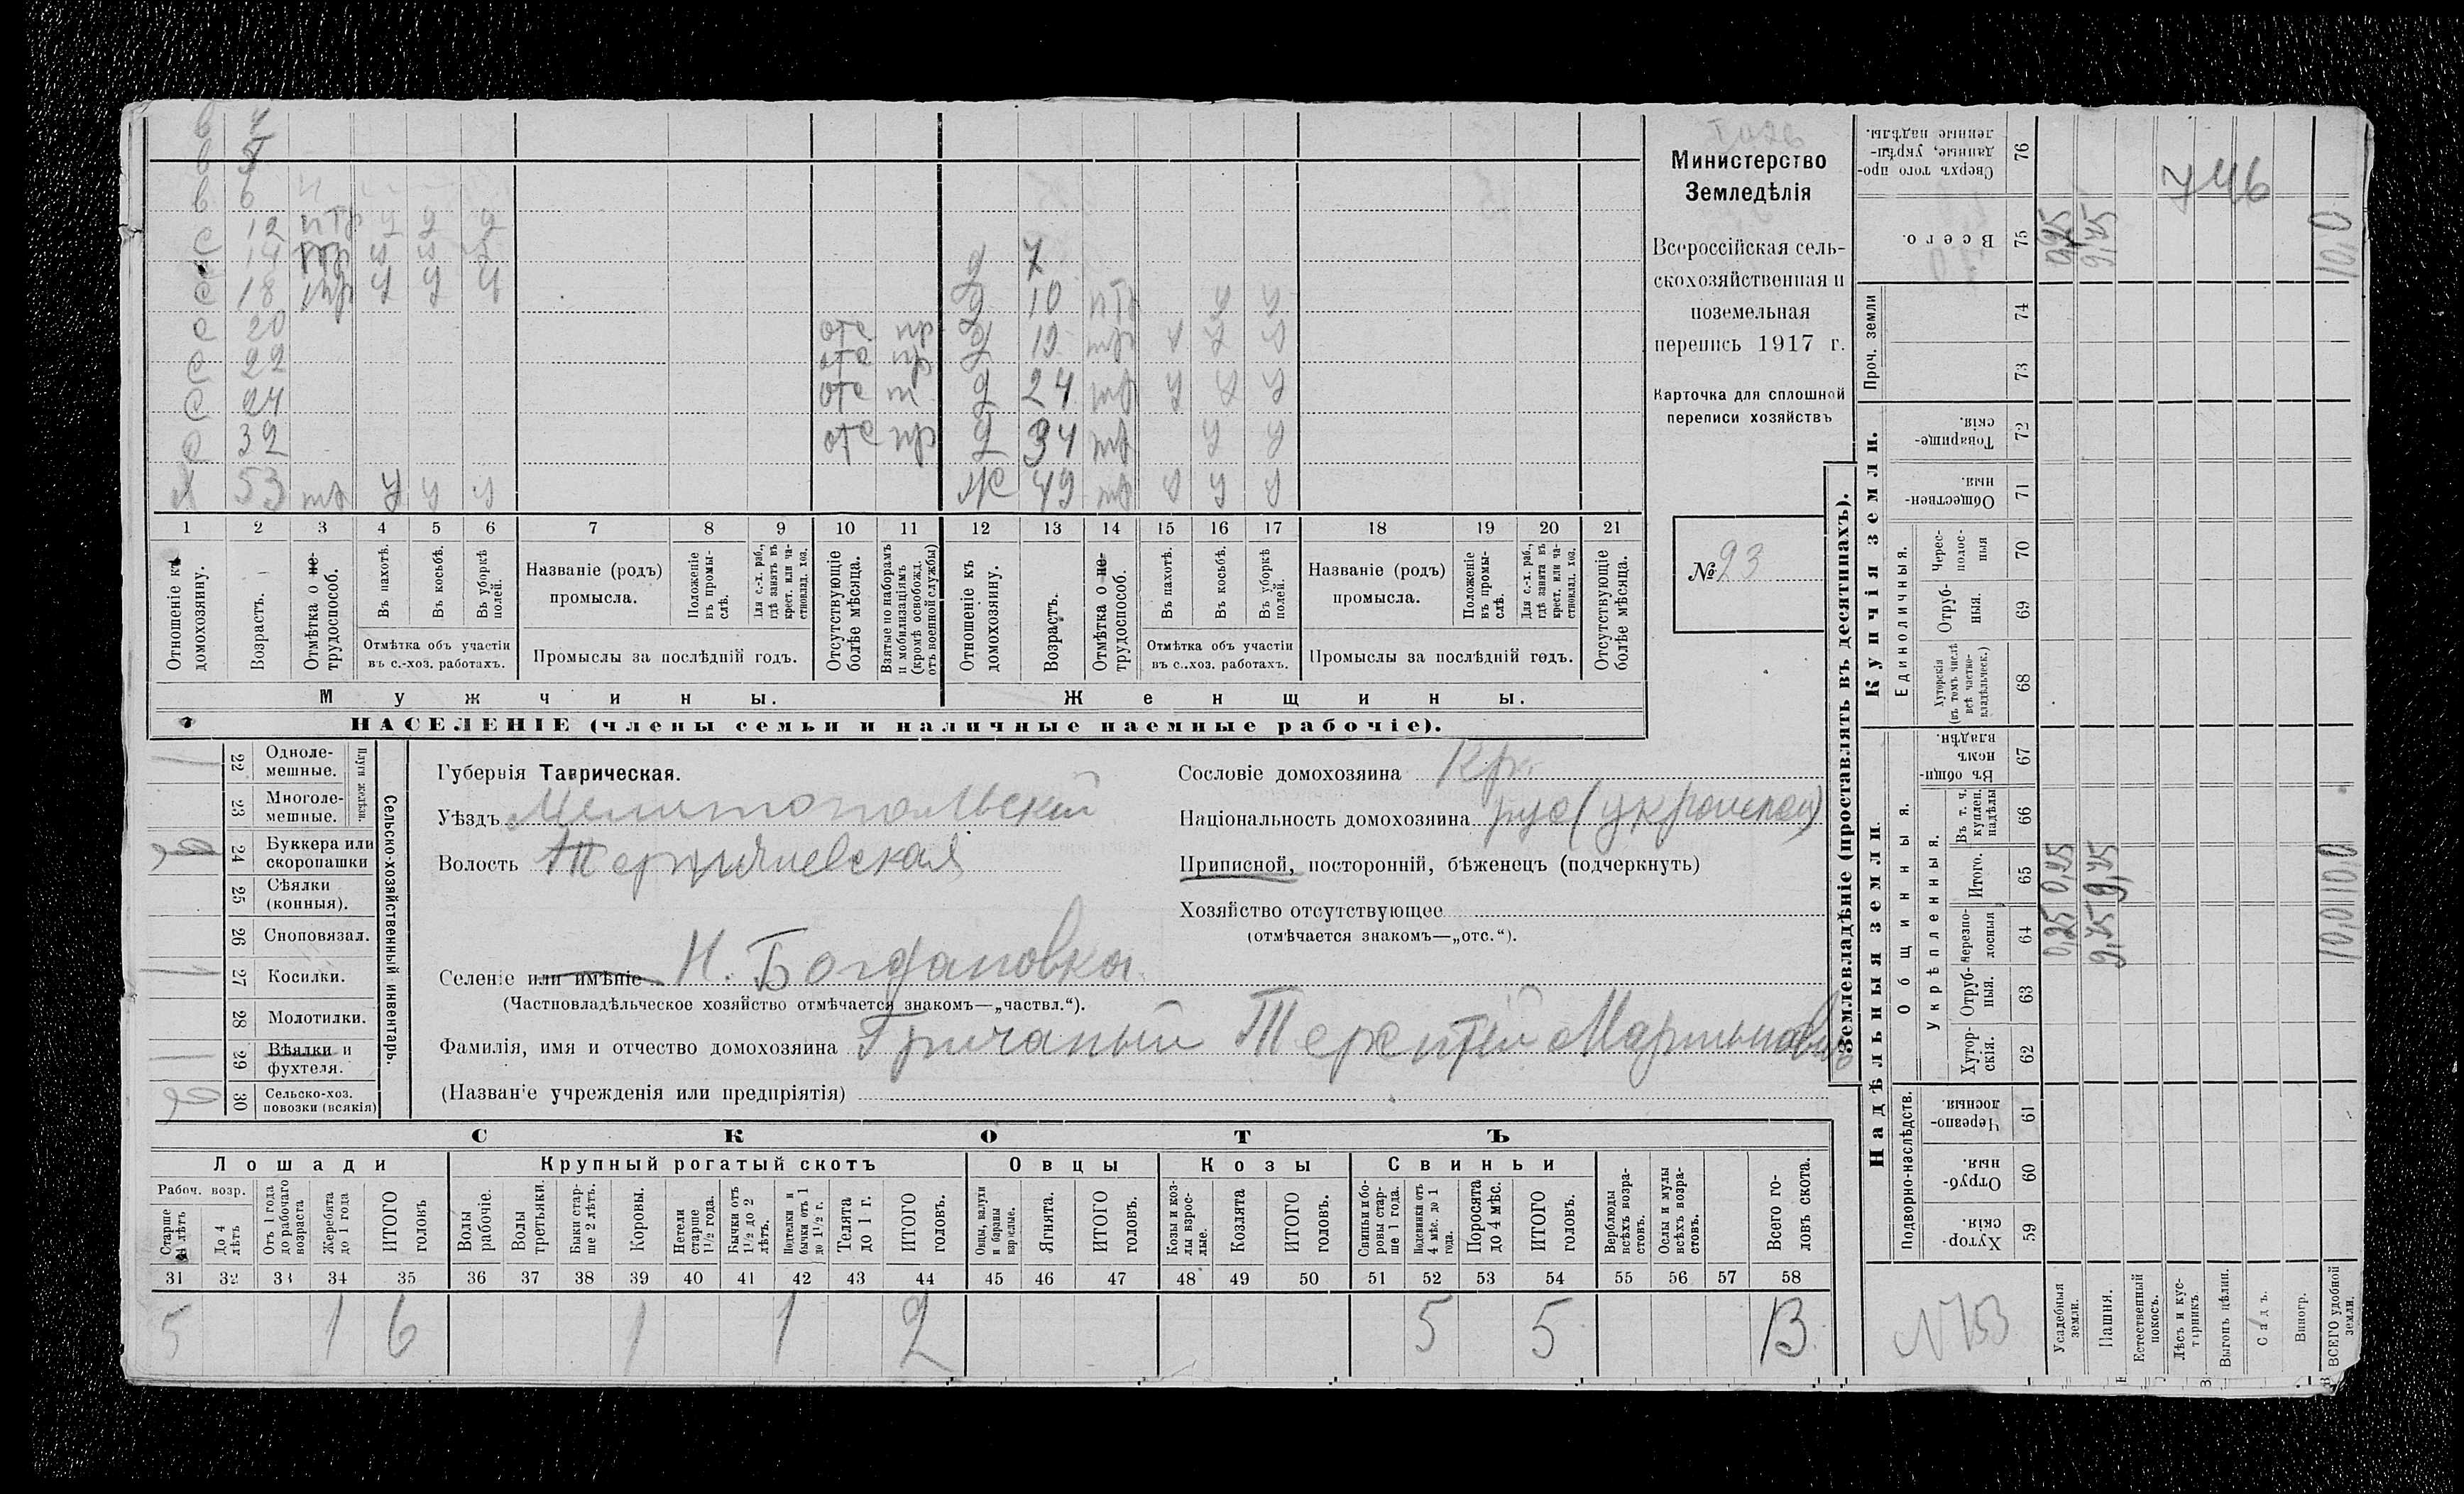 Министерство
Земледѣлія
Всероссійская сель-
скохозяйственная и
поземельная
перепись 1917 г.
Карточка для сплошной
переписи хозяйствъ
№ 23
в 5
в 6
с 12 птр у у у
с 14
с 18 у у у
с 20 отс пр
с 22 отс пр
с 24 отс
с 32 отс пр
х 53 тр у у у
д 7
д 10 птр у у
д 19 тр у у у
д 24 тр у у у
д 34 тр у у
ж 49 тр у у у
1 2 3 4 5 6 7 8 9 10 11 12 13 14 15 16 17 18 19 20 21
Отношеніе къ домохозяину.
Возрастъ.
Отмѣтка о не-трудоспособ.
Въ пахотѣ.
Въ косьбѣ.
Въ уборкѣ полей.
Отмѣтка объ участіи
въ с.-хоз. работахъ.
Названіе (родъ)
промысла.
Положеніе въ промы-слѣ.
Для с.-х. раб., гдѣ занятъ въ крест. или ча-стновлад. хоз.
Промыслы за послѣдній годъ.
Отсутствующіе болѣе мѣсяца.
Взятые по наборамъ и мобилизаціямъ (кромѣ освобожд. отъ военной службы)
Отношеніе къ домохозяину.
Возрастъ.
Отмѣтка о не-трудоспособ.
Въ пахотѣ.
Въ косьбѣ.
Въ уборкѣ полей.
Отмѣтка объ участіи
въ с..хоз. работахъ.
Названіе (родъ)
промысла.
Положеніе въ промы-слѣ.
Для с.-х. раб., гдѣ занята въ крест. или ча-стновлад. хоз.
Промыслы за послѣдній годъ.
Отсутствующіе болѣе мѣсяца.
Мужчины.
Женщины.
НАСЕЛЕНІЕ (члены семьи и наличные наемные рабочіе).
22 Одноле-мешные.
23 Многоле-мешные.
Плуги желѣзн.
24 Буккера или скоропашки
25 Сѣялки (конныя).
26 Сноповязал.
27 Косилки.
28 Молотилки.
29 Вѣялки и фухтеля.
30 Сельско-хоз. повозки (всякія)
Сельско-хозяйственный инвентарь.
Губернія Таврическая.
Уѣздъ Мелитопольскій
Волость Терпѣніевская
Селеніе или имѣніе Н. Богдановка
(Частновладѣльческое хозяйство отмѣчается знакомъ—„частвл.“).
Фамилія, имя и отчество домохозяина Гричаный Терентій Мартынович
(Названіе учрежденія или предпріятія)
Сословіе домохозяина Кр.
Національность домохозяина рус (украинец)
Приписной, посторонній, бѣженецъ (подчеркнуть)
Хозяйство отсутствующее
(отмѣчается знакомъ—„отс.“).
СКОТЪ
Лошади
Крупный рогатый скотъ
Овцы
Козы
Свиньи
Рабоч. возр.
Старше 4 лѣтъ
До 4 лѣтъ
Отъ 1 года до рабочаго возраста
Жеребята до 1 года
ИТОГО головъ
Волы рабочіе.
Волы третьяки.
Быки стар-ше 2 лѣтъ.
Коровы.
Нетели старше 1 1/2 года.
Бычки отъ 1 1/2 до 2 лѣтъ.
Подтелки и бычки отъ 1 до 1 1/2 г.
Телята до 1 г.
ИТОГО головъ.
Овцы, валухи и бараны взрослые.
Ягнята.
ИТОГО головъ.
Козы и коз-лы взрос-лые.
Козлята
ИТОГО головъ.
Свиньи и бо-ровы стар-ше 1 года.
Подсвинки отъ 4 мѣс. до 1 года.
Поросята до 4 мѣс.
ИТОГО головъ.
Верблюды всѣхъ возра-стовъ.
Ослы и мулы всѣхъ возра-стовъ.
Всего го-ловъ скота.
31 32 33 34 35 36 37 38 39 40 41 42 43 44 45 46 47 48 49 50 51 52 53 54 55 56 57 58
5 1 6 1 1 2 5 5 13
Землевладѣніе (проставлять въ десятинахъ).
Купчія земли.
Надѣльныя земли
Сверхъ того про-данные, укрѣп-ленные надѣлы. 76
Всего. 75
Проч. земли
74
73
Товарище-скія. 72
Обществен-ныя. 71
Единоличныя.
Черес-полос-ныя 70
Отруб-ныя. 69
Хуторскія (въ томъ числѣ всѣ частно-владѣльческ.) 68
Въ общи-номъ владѣн. 67
Общинныя.
Укрѣпленныя.
Въ т. ч. куплен. надѣлы 66
Итого. 65
Черезпо-лосныя 64
Отруб-ныя. 63
Хутор-скія. 62
Подворно-наслѣдств.
Черезпо-лосныя. 61
Отруб-ныя. 60
Хутор-скія. 59
Усадебныя земли.
Пашня.
Естественный покосъ.
Лѣсъ и кус-тарникъ
Выгонъ цѣлин.
Садъ.
Виногр.
ВСЕГО удобной земли.
9,45
10,0
746
0,25
9,45 9,45
10,0 10,0
N 153